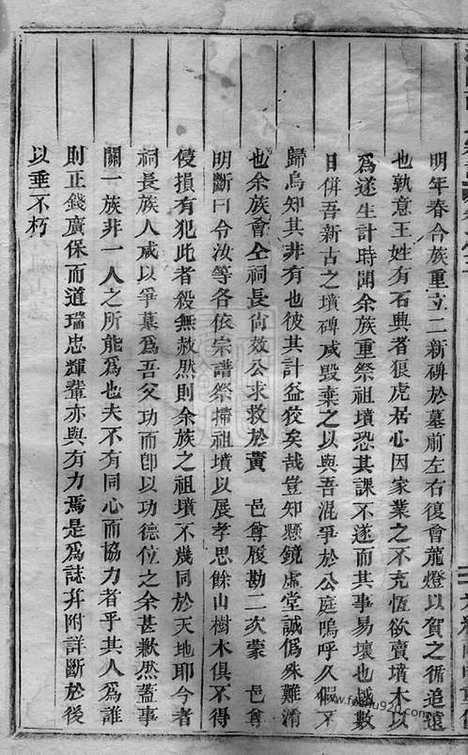 明年春合族重立二新碑於墓前左右復會龍燈以賀之循追遠
也孰意王姓有石興者狼虎居心因家業之不充恆欲賣墳木以
為遂生計時聞余族重祭祖墳恐其課不遂而其事易壞也越數
日併吾新古之墳碑咸毀棄之以與吾混爭於公庭嗚呼久假不
歸烏知其非有也彼其計益狡矣哉豈知懸鏡虛堂誠偽殊難淆
也余族會仝祠長尚效公求救於黃 邑尊履勘二次蒙 邑尊
明斷曰令汝等各依宗譜祭掃祖墳以展孝思餘山樹木俱不得
侵損有犯此者殺無赦然則余族之祖墳不幾同於天地耶今者
祠長族人咸以爭墓為吾父功而卽以功德位之余甚歉然蓋事
關一族非一人之所能為也夫不有同心而協力者乎其人為誰
則正錢廣保而道瑞忠輝輩亦與有力焉是為誌幷附詳斷於後
以垂不朽
www.foxhu920.com